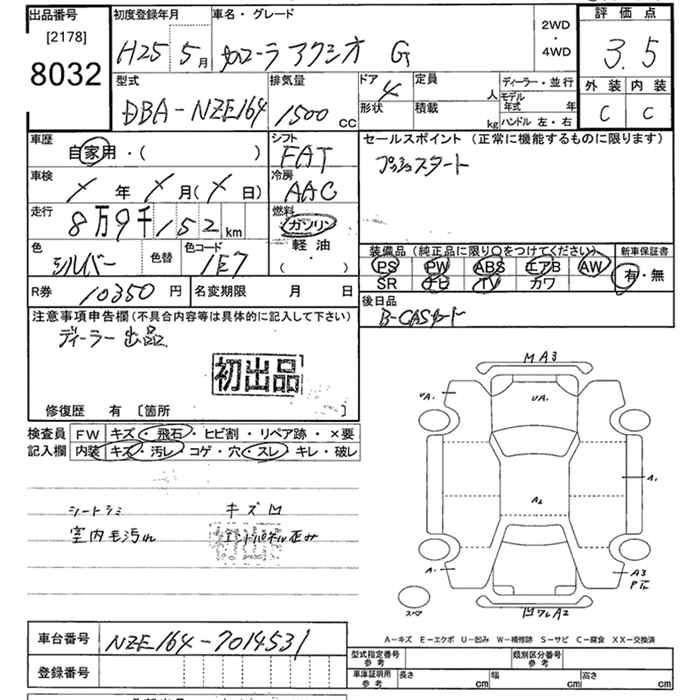 出品番号
[2178]
8032
初度登録年月
H25 5月
車名・グレード
カローラ アクシオ G
2WD
・
4WD
評価点
3.5
外装 内装
C C
型式
DBA-NZE164
排気量
1500 CC
ドア 4
形状
定員 人
積載 kg
ディーラー・並行
モデル年式 年
ハンドル 左・右
車歴
自家用・( )
シフト
FAT
車検
／年 ／月(／日)
冷房
AAC
走行
8万9千152km
燃料
ガソリン
軽油
( )
色
シルバー
色替
色コード
1E7
セールスポイント (正常に機能するものに限ります)
プッシュスタート
装備品 (純正品に限り○をつけてください)
PS PW ABS エアB AW
SR ナビ TV カワ
新車保証書
有・無
R券 10350円
名変期限 月 日
後日品
B-CASカード
注意事項申告欄(不具合内容等は具体的に記入して下さい)
ディーラー出品
初出品
修復歴 有 [箇所 ]
検査員
記入欄
FW キズ・飛石・ヒビ割・リペア跡・×要
内装 キズ・汚レ・コゲ・穴・スレ・キレ・破レ
シートシミ キズ凹
室内毛汚れ
MA3
UA.
UA.
A.
A2
A.
A3
スペア
A2
A－キズ E－エクボ U－凹み W－補修跡 S－サビ C－腐食 XX－交換済
車台番号 NZE164-7014531
登録番号
型式指定番号
参考
類別区分番号
参考
車庫証明用
参考
長さ cm
幅 cm
高さ cm